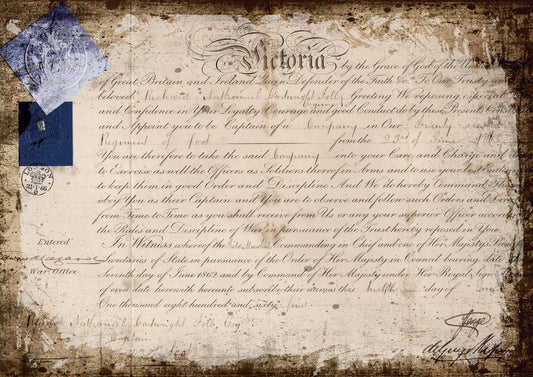 Victoria by the Grace of God of the
of Great Britain and Ireland Queen Defender of the Faith &c. To Our Trusty and
beloved Nathaniel Cartwright Folly Greeting We reposing especial
and Confidence in Your Loyalty Courage and good Conduct do by these Presents Con
and Appoint you to be Captain of a Company in Our Twenty
Regiment of foot from the 23rd of June
You are therefore to take the said Company into your Care and Charge and
to Exercise as well the Officers as Soldiers thereof in Arms and to use your best
to keep them in good Order and Discipline And We do hereby Command Them
obey you as their Captain and You are to observe and follow such Orders and
from Time to Time as you shall receive from Us or any your superior Officer accord
the Rules and Discipline of War in pursuance of the Trust hereby reposed in You.
Entered
War Office
In Witness whereof the Commanding in Chief and one of Her Majesty's Prin
Secretaries of State in pursuance of the Order of Her Majesty in Council bearing date
Seventh day of June 1862 and by Command of Her Majesty under Her Royal Sign
of even date herewith hereunto subscribe their names this Twelfth day of
One thousand eight hundred and sixty
Nathaniel Cartwright Folly Esq
Captain
foot